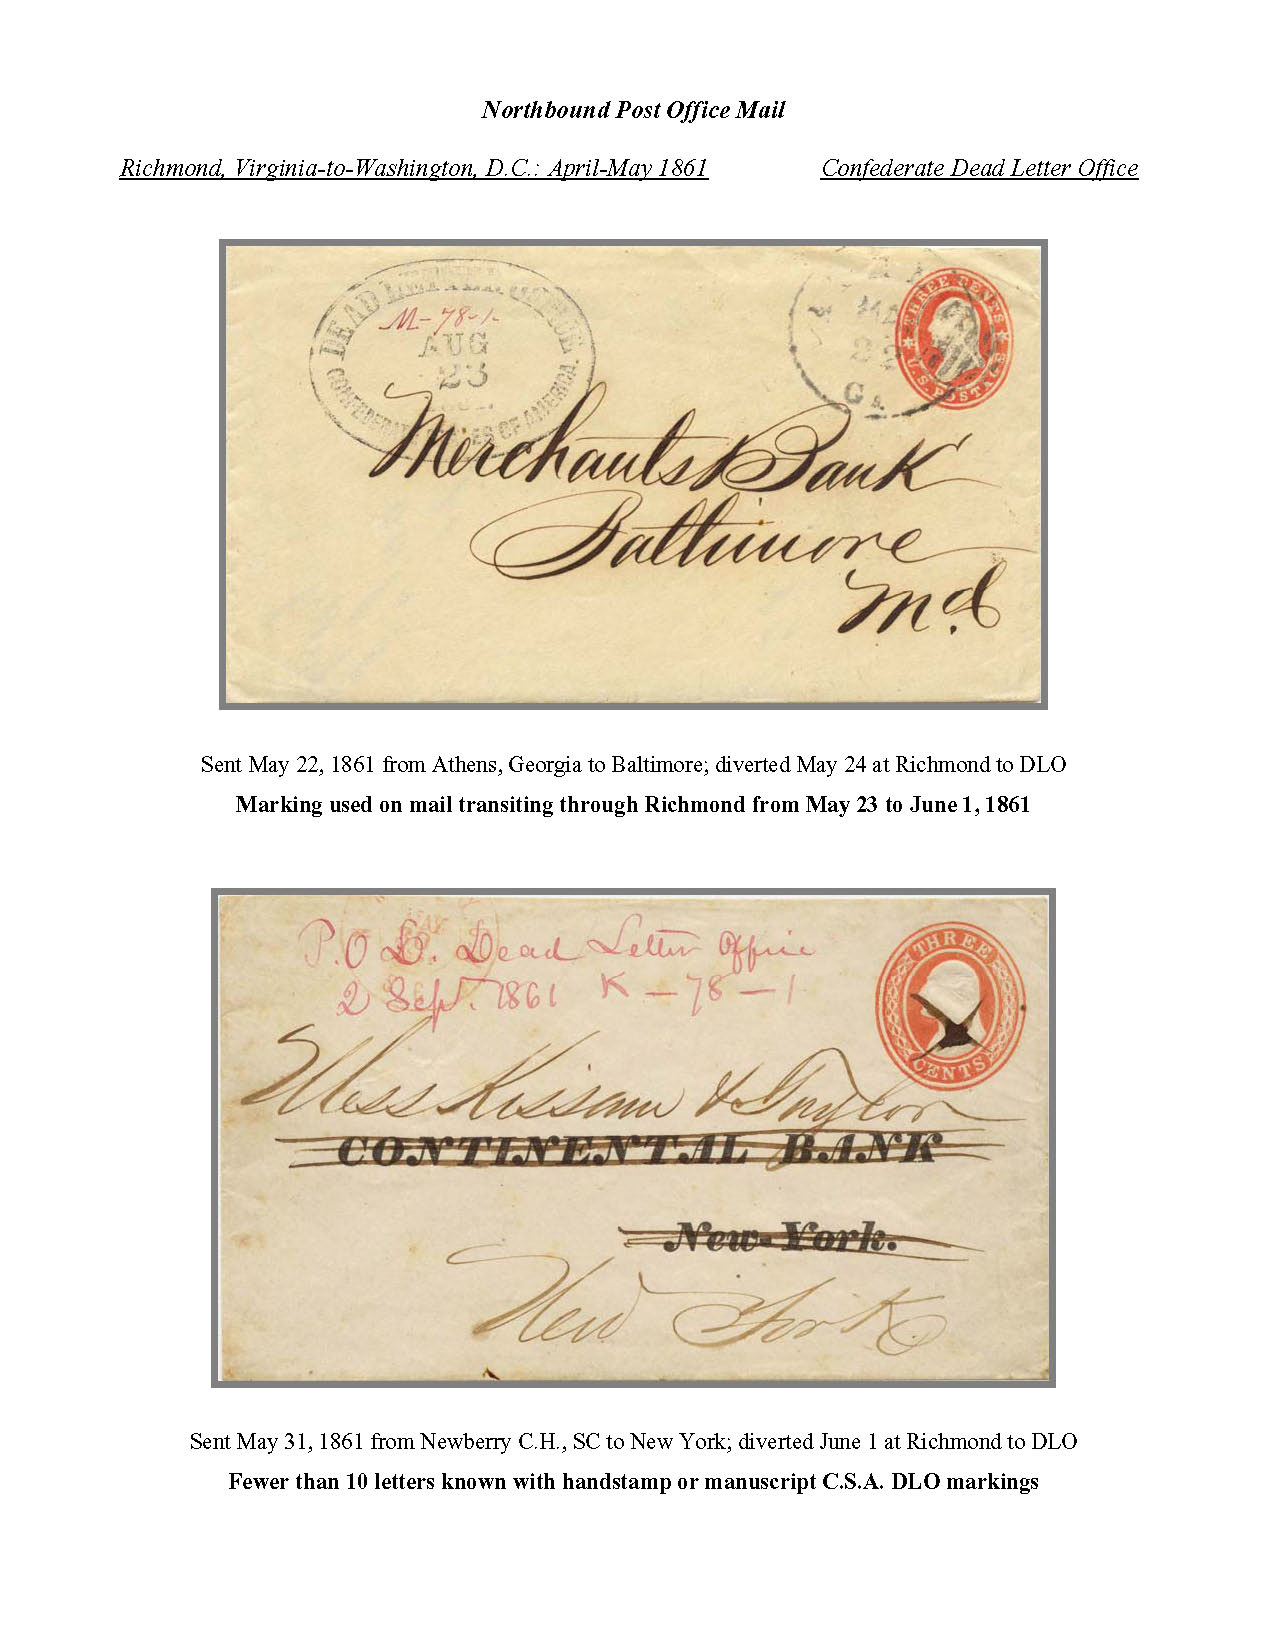 Northbound Post Office Mail
Richmond, Virginia-to-Washington, D.C.: April-May 1861 Confederate Dead Letter Office
DEAD LETTER OFFICE
M-78-1
AUG
23
CONFEDERATE STATES OF AMERICA.
22
Ga.
THREE CENTS
U.S. POSTAGE
Merchants Bank
Baltimore
Md.
Sent May 22, 1861 from Athens, Georgia to Baltimore; diverted May 24 at Richmond to DLO
Marking used on mail transiting through Richmond from May 23 to June 1, 1861
P.O D. Dead Letter Office
2 Sept. 1861 K - 78 - 1
THREE
CENTS
Mess Kissam & Taylor
CONTINENTAL BANK
New-York.
New York
Sent May 31, 1861 from Newberry C.H., SC to New York; diverted June 1 at Richmond to DLO
Fewer than 10 letters known with handstamp or manuscript C.S.A. DLO markings